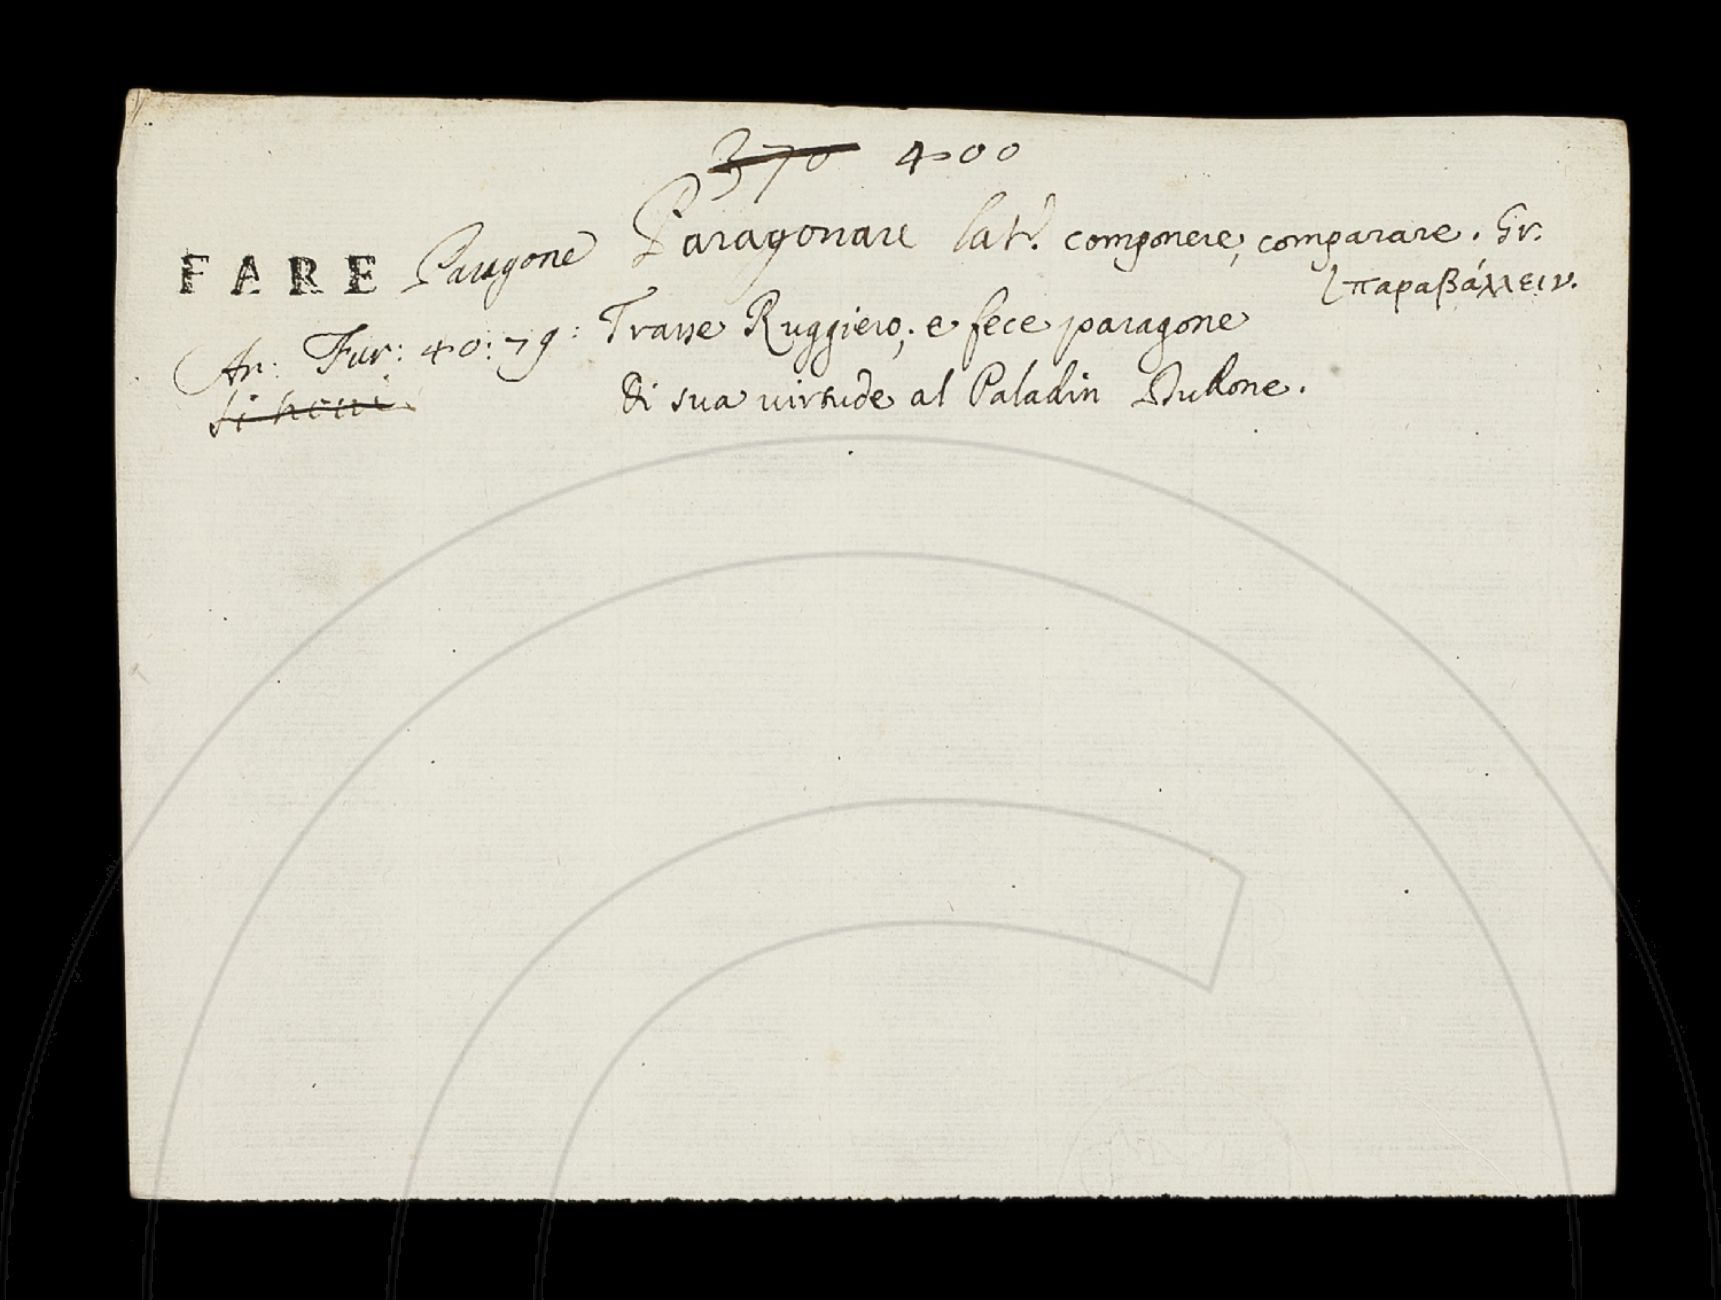 370 400
FARE Paragone Paragonare lat. componere, comparare. Gr.
παραβάλλειν.
Ar: Fur: 40: 79: Trasse Ruggiero; e fece paragone
Di sua virtude al Paladin Dudone.